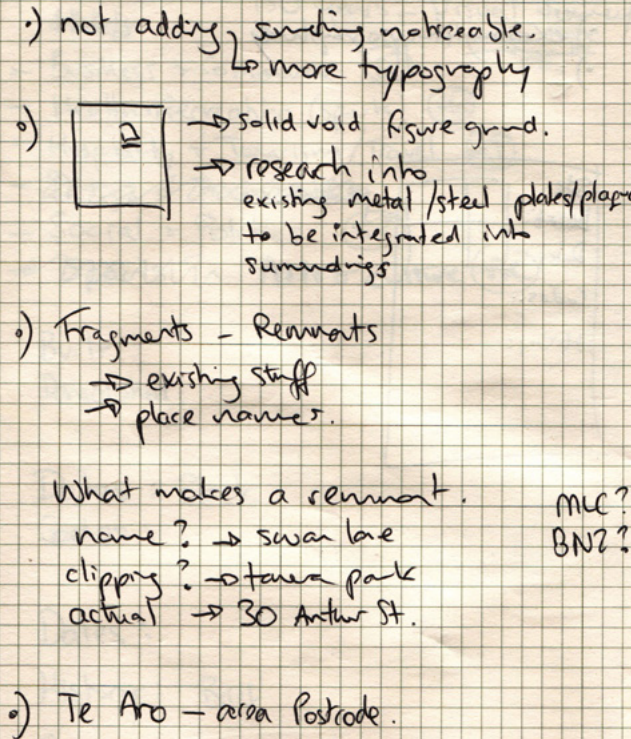 •) not adding, something noticeable.
↳ more typography
•) → solid void figure ground.
→ research into
existing metal / steel plates/plaqu
to be integrated into
surroundings
•) Fragments - Remnants
→ existing stuff
→ place names.
What makes a remnant. MLC?
name? → swan lane BNZ?
clipping? → park
actual → 30 Arthur St.
•) Te Aro - area Postcode.